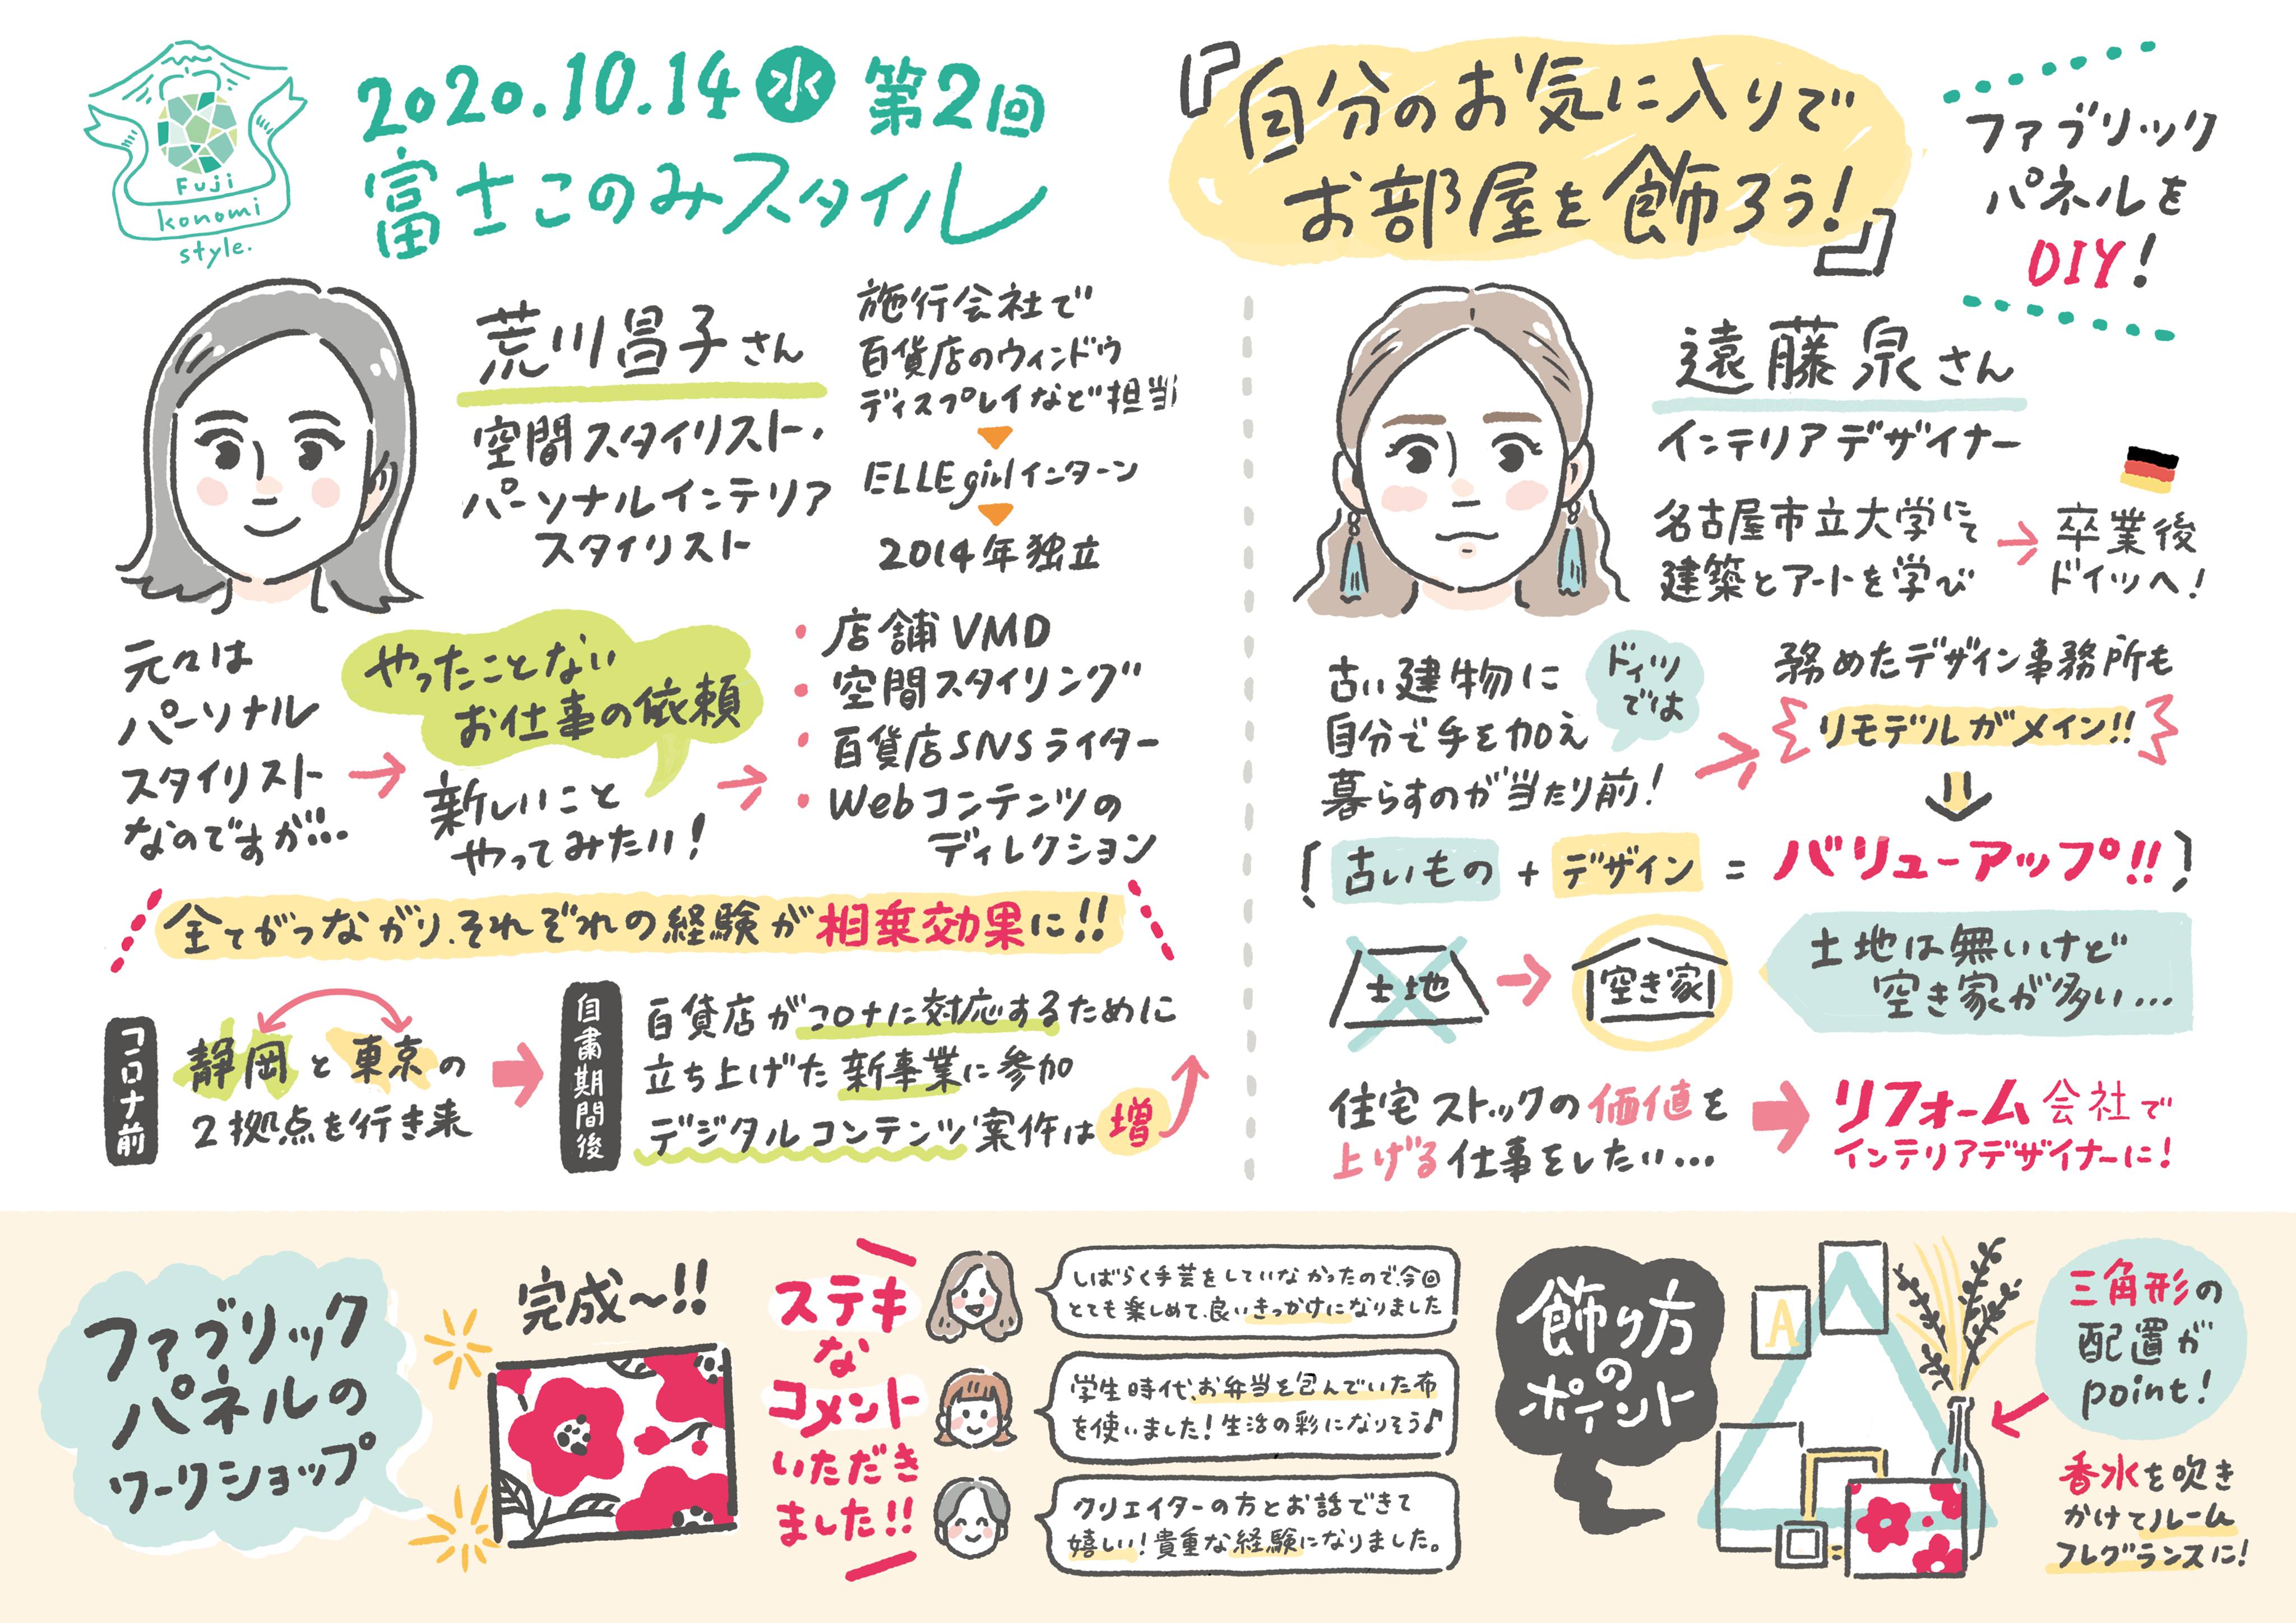 Fuji
konomi
style.
2020.10.14 水 第2回
富士このみスタイル
『自分のお気に入りで
お部屋を飾ろう!』
ファブリック
パネルを
DIY!
荒川昌子さん
空間スタイリスト・
パーソナルインテリア
スタイリスト
施行会社で
百貨店のウィンドウ
ディスプレイなど担当
ELLE girlインターン
2014年独立
元々は
パーソナル
スタイリスト
なのですが…
やったことない
お仕事の依頼
新しいこと
やってみたい!
・店舗VMD
・空間スタイリング
・百貨店SNSライター
・Webコンテンツの
ディレクション
全てがつながり、それぞれの経験が相乗効果に!!
コロナ前
静岡と東京の
2拠点を行き来
自粛期間後
百貨店がコロナに対応するために
立ち上げた新事業に参加
デジタルコンテンツ案件は増
遠藤泉さん
インテリアデザイナー
名古屋市立大学にて
建築とアートを学び
→卒業後
ドイツへ!
ドイツ
では
古い建物に
自分で手を加え
暮らすのが当たり前!
務めたデザイン事務所も
リモデルがメイン!!
(古いもの+デザイン=バリューアップ!!)
土地
→空き家
土地は無いけど
空き家が多い…
住宅ストックの価値を
上げる仕事をしたい…
リフォーム会社で
インテリアデザイナーに!
ファブリック
パネルの
ワークショップ
完成〜!!
ステキ
な
コメント
いただき
ました!!
しばらく手芸をしていなかったので、今回
とても楽しめて、良いきっかけになりました
学生時代、お弁当を包んでいた布
を使いました!生活の彩になりそう♪
クリエイターの方とお話できて
嬉しい!貴重な経験になりました。
飾り方
の
ポイント
A
三角形の
配置が
point!
香水を吹き
かけてルーム
フレグランスに!